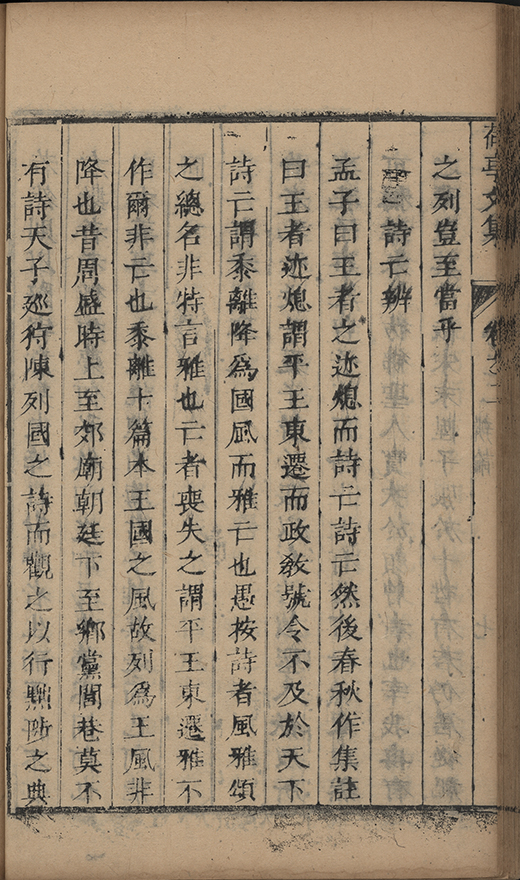 荷亭文集 卷之二
之列豈至當乎
詩亡辨
孟子曰王者之迹熄而詩亡詩亡然後春秋作集註
曰王者迹熄謂平王東遷而政教號令不及於天下
詩亡謂黍離降爲國風而雅亡也愚按詩者風雅頌
之總名非特言雅也亡者喪失之謂平王東遷雅不
作爾非亡也黍離十篇本王國之風故列爲王風非
降也昔周盛時上至郊廟朝廷下至鄉黨閭巷莫不
有詩天子廵狩陳列國之詩而觀之以行黜陟之典